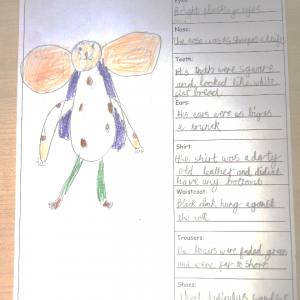 Eyes:
Bright flashing eyes
Nose:
The nose was as sharp as a knife
Teeth:
His teeth were square
and looked like white
flat bread
Ears:
His ears were as big as
a trunk
Shirt:
His shirt was a dirty
old leather and didint
have any bottons
Waistcoat:
Black cloak hung against
the
Trousers:
were faded green
and were far to short
Shoes: